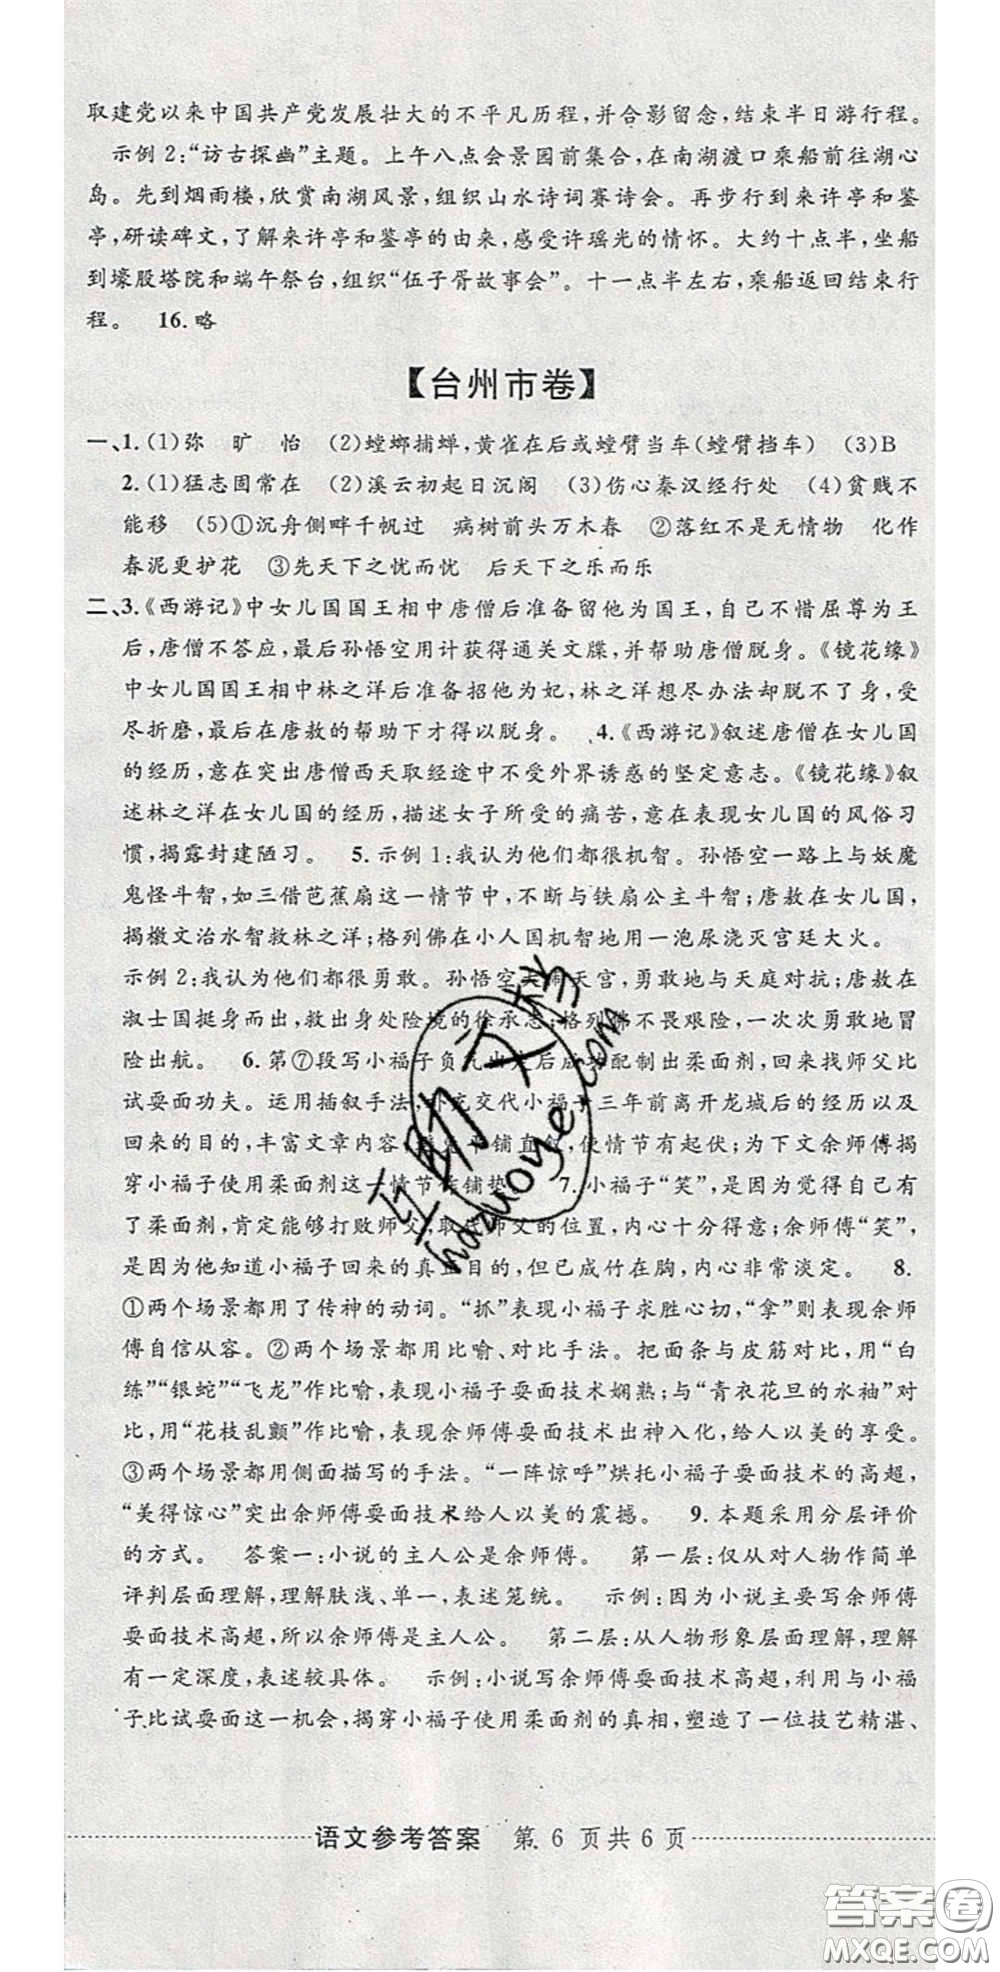 取建党以来中国共产党发展壮大的不平凡历程,并合影留念,结束半日游行程。
示例2:“访古探幽”主题。上午八点会景园前集合,在南湖渡口乘船前往湖心
岛。先到烟雨楼,欣赏南湖风景,组织山水诗词赛诗会。再步行到来许亭和鉴
亭,研读碑文,了解来许亭和鉴亭的由来,感受许瑶光的情怀。大约十点半,坐船
到壕股塔院和端午祭台,组织“伍子胥故事会”。十一点半左右,乘船返回结束行
程。 16.略
【台州市卷】
一、1.(1)弥 旷 怡 (2)螳螂捕蝉,黄雀在后或螳臂当车(螳臂挡车) (3)B
2.(1)猛志固常在 (2)溪云初起日沉阁 (3)伤心秦汉经行处 (4)贫贱不
能移 (5)①沉舟侧畔千帆过 病树前头万木春 ②落红不是无情物 化作
春泥更护花 ③先天下之忧而忧 后天下之乐而乐
二、3.《西游记》中女儿国国王相中唐僧后准备留他为国王,自己不惜屈尊为王
后,唐僧不答应,最后孙悟空用计获得通关文牒,并帮助唐僧脱身。《镜花缘》
中女儿国国王相中林之洋后准备招他为妃,林之洋想尽办法却脱不了身,受
尽折磨,最后在唐敖的帮助下才得以脱身。 4.《西游记》叙述唐僧在女儿国
的经历,意在突出唐僧西天取经途中不受外界诱惑的坚定意志。《镜花缘》叙
述林之洋在女儿国的经历,描述女子所受的痛苦,意在表现女儿国的风俗习
惯,揭露封建陋习。 5.示例1:我认为他们都很机智。孙悟空一路上与妖魔
鬼怪斗智,如三借芭蕉扇这一情节中,不断与铁扇公主斗智;唐敖在女儿国,
揭檄文治水智救林之洋;格列佛在小人国机智地用一泡尿浇灭宫廷大火。
示例2:我认为他们都很勇敢。孙悟空大闹天宫,勇敢地与天庭对抗;唐敖在
淑士国挺身而出,救出身处险境的徐承志;格列佛不畏艰险,一次次勇敢地冒
险出航。 6.第⑦段写小福子负气出走后成功配制出柔面剂,回来找师父比
试耍面功夫。运用插叙手法,补充交代小福子三年前离开龙城后的经历以及
回来的目的,丰富文章内容,避免平铺直叙,使情节有起伏;为下文余师傅揭
穿小福子使用柔面剂这一情节作铺垫。 7.小福子“笑”,是因为觉得自己有
了柔面剂,肯定能够打败师父,取代师父的位置,内心十分得意;余师傅“笑”,
是因为他知道小福子回来的真正目的,但已成竹在胸,内心非常淡定。 8.
①两个场景都用了传神的动词。“抓”表现小福子求胜心切,“拿”则表现余师
傅自信从容。②两个场景都用比喻、对比手法。把面条与皮筋对比,用“白
练”“银蛇”“飞龙”作比喻,表现小福子耍面技术娴熟;与“青衣花旦的水袖”对
比,用“花枝乱颤”作比喻,表现余师傅耍面技术出神入化,给人以美的享受。
③两个场景都用侧面描写的手法。“一阵惊呼”烘托小福子耍面技术的高超,
“美得惊心”突出余师傅耍面技术给人以美的震撼。 9.本题采用分层评价
的方式。 答案一:小说的主人公是余师傅。 第一层:仅从对人物作简单
评判层面理解,理解肤浅、单一,表述笼统。 示例:因为小说主要写余师傅
耍面技术高超,所以余师傅是主人公。 第二层:从人物形象层面理解,理解
有一定深度,表述较具体。 示例:小说写余师傅耍面技术高超,利用与小福
子比试耍面这一机会,揭穿小福子使用柔面剂的真相,塑造了一位技艺精湛、
语文参考答案 第 6 页共 6 页
互助文档
hzduoye.com
答案圈
MXQE.COM